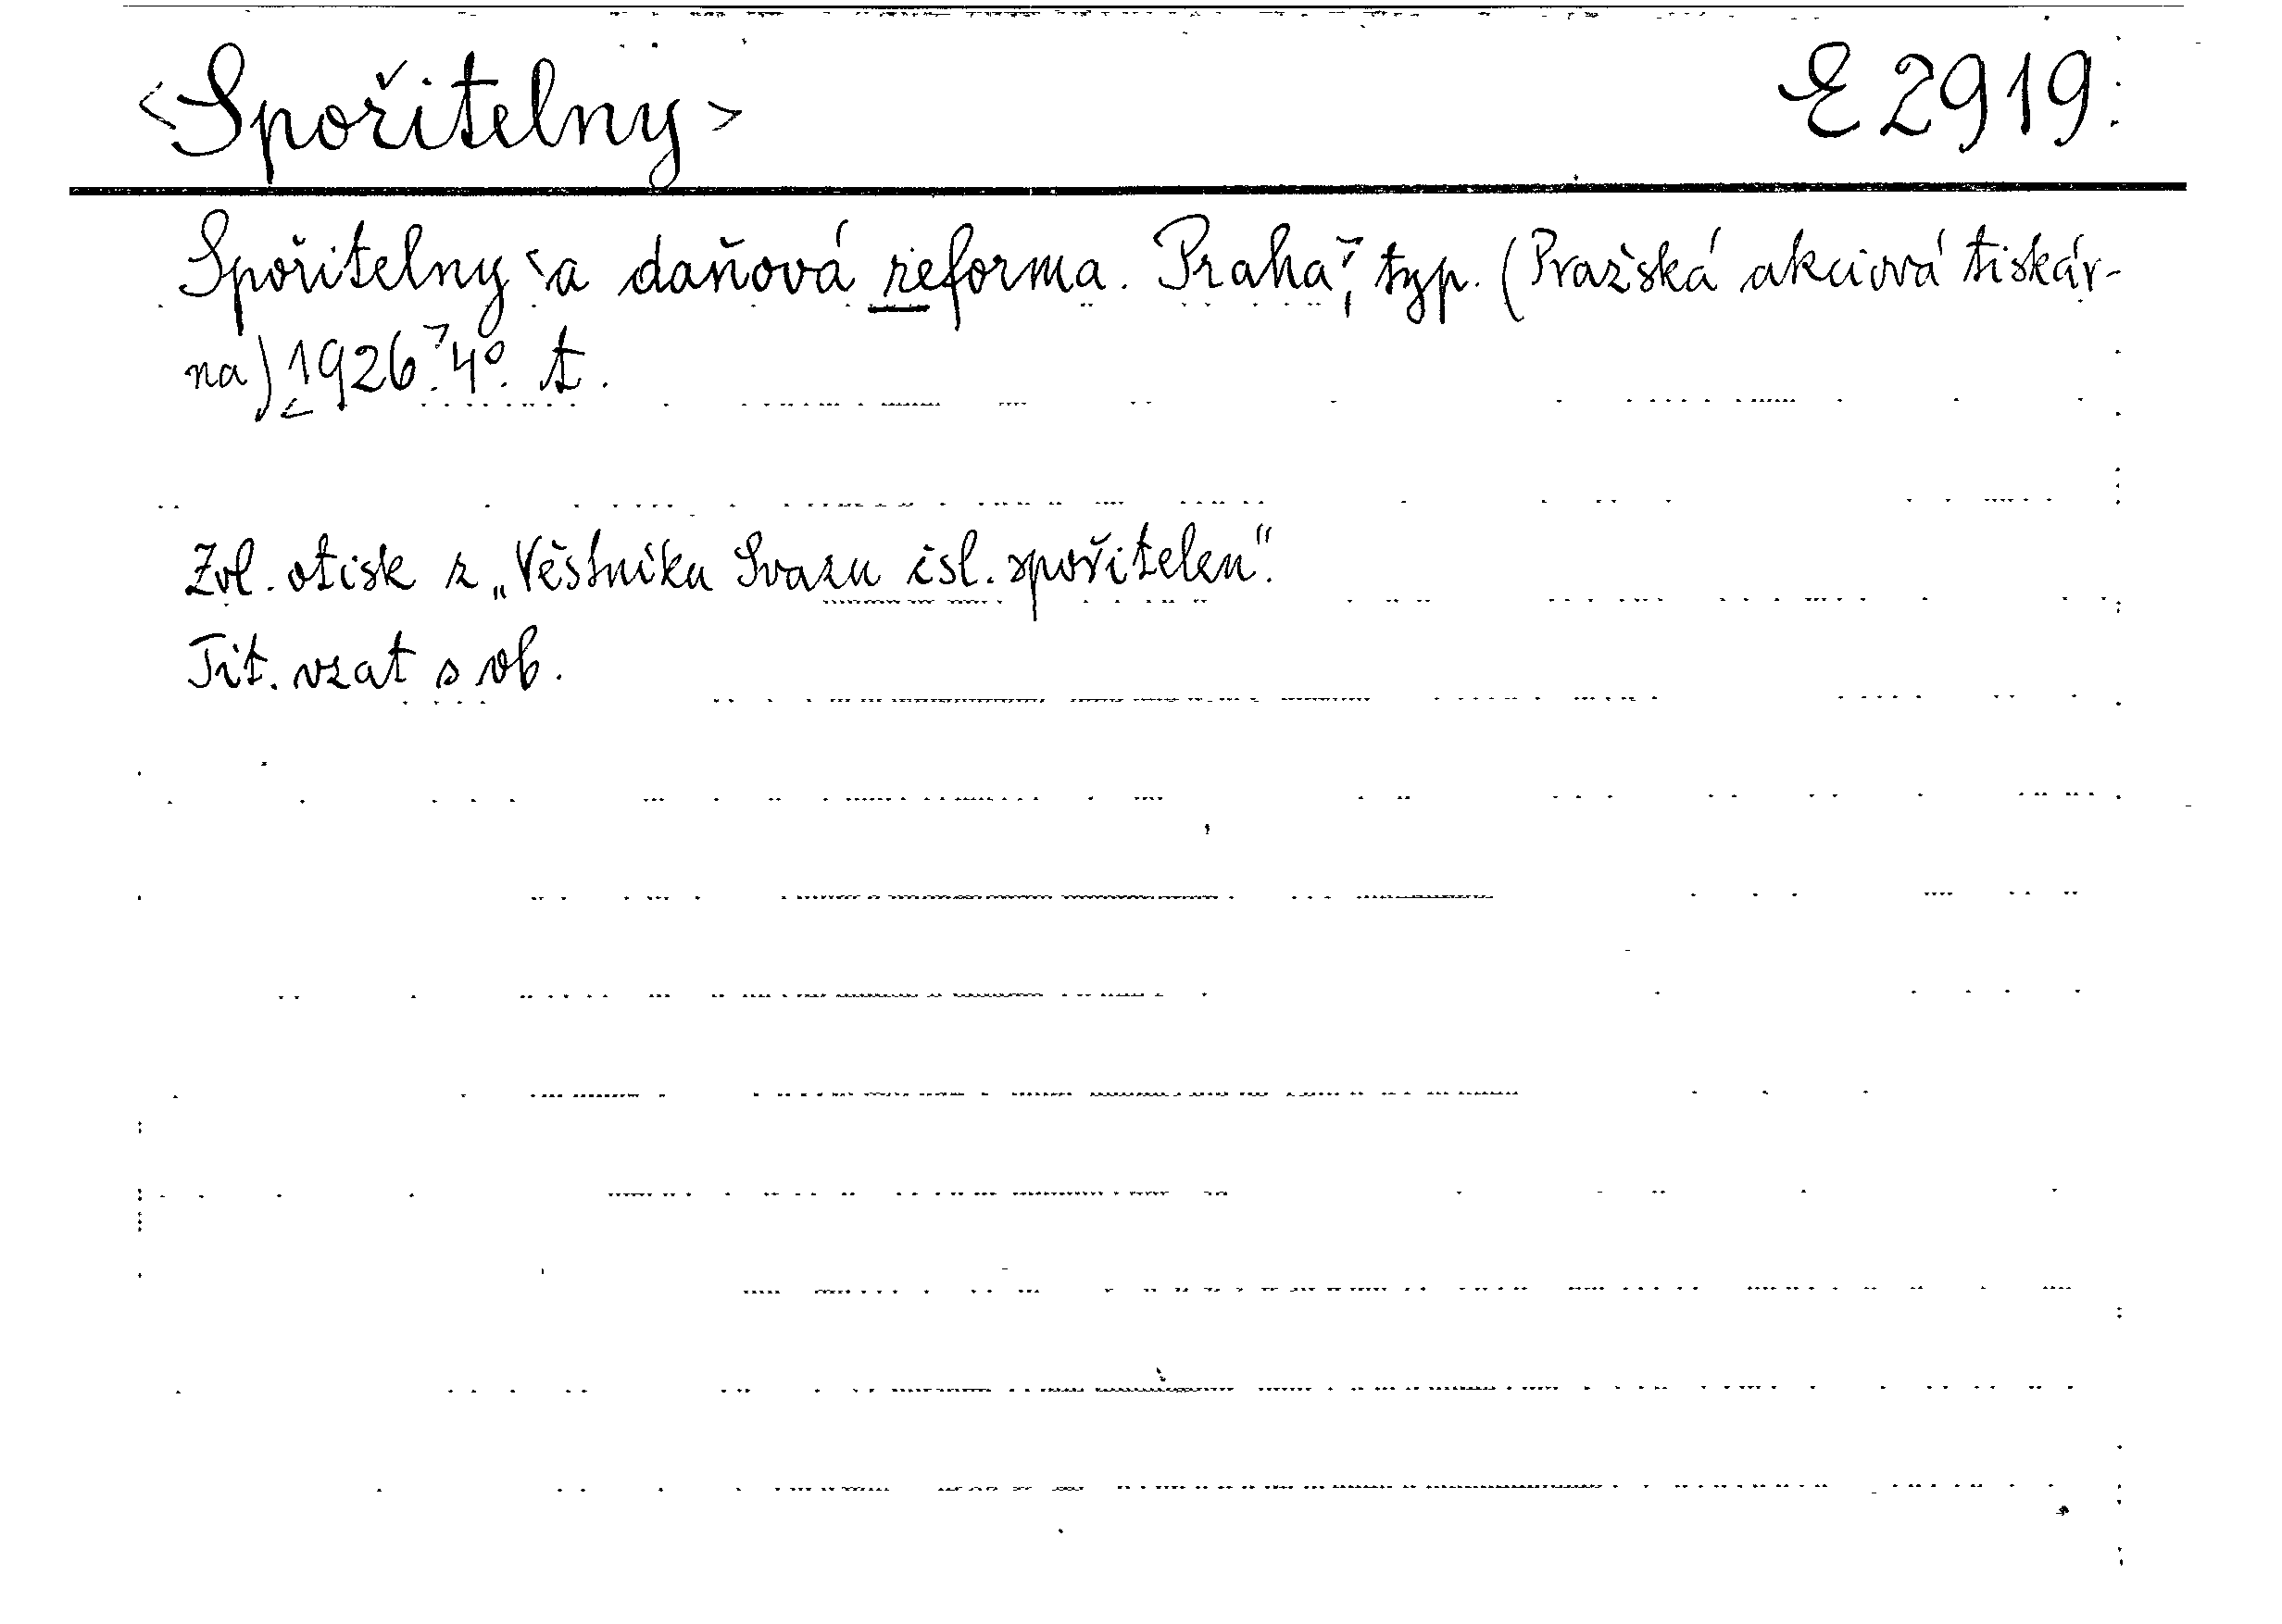 <Spořitelny> E 2919
Spořitelny a daňová reforma. Praha, typ. (Pražská akciová tiskár-
na) 1926. 4°. t.
Zvl. otisk z „Věstníku Svazu čsl. spořitelen".
Tit. vzat s ob.